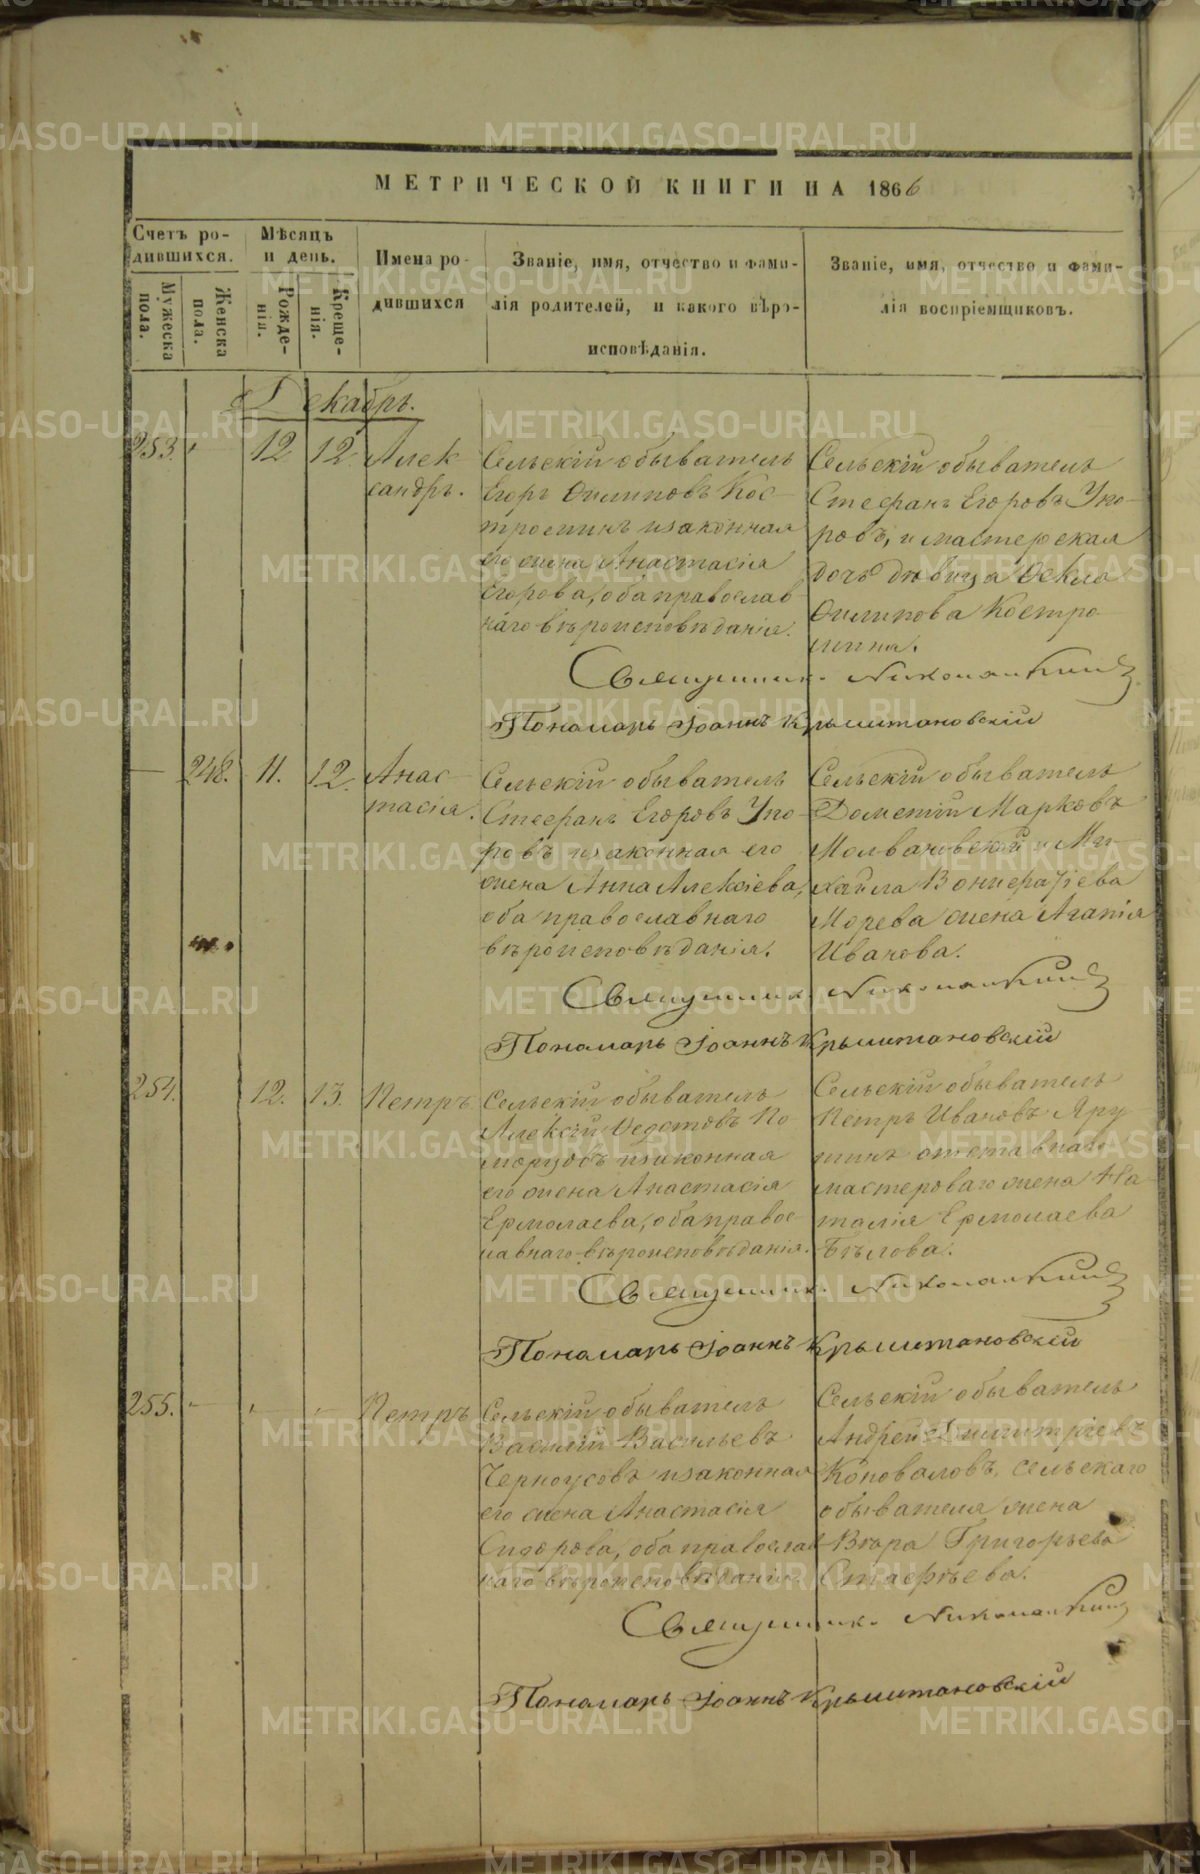 МЕТРИЧЕСКОЙ КНИГИ НА 1866
Счетъ ро-
дившихся.
Мужеска
пола.
Женска
пола.
Мѣсяцъ
и день.
Рожде-
нія.
Креще-
нія.
Имена ро-
дившихся
Званіе, имя, отчество и фами-
лія родителей, и какого вѣро-
исповѣданія.
Званіе, имя, отчество и фами-
лія воспріемщиковъ.
Декабрь.
253. 12 12 Алек
сандръ.
Сельскій обыватель
Егоръ Филиповъ Кос-
троминъ и законная
его жена Анастасія
Егорова, оба православ
наго вѣроисповѣданія.
Сельскій обыватель
Стефанъ Егоровъ Упо-
ровъ, и мастерская
дочь дѣвица Фекла
Филипова Костро-
мина.
Священникъ
Пономарь Іоаннъ Крыштановскій
— 248. 11. 12. Анас-
тасія.
Сельскій обыватель
Стефанъ Егоровъ Упо-
ровъ и законная его
жена Анна Алексіева,
оба православнаго
вѣроисповѣданія.
Сельскій обыватель
Дометій Марковъ
Молвановской и Ми-
хаила Вонифатіева
Морева жена Агапія
Иванова.
Священникъ
Пономарь Іоаннъ Крыштановскій
254. 12. 13. Петръ
Сельскій обыватель
Алексій Федотовъ По-
моруовъ и законная
его жена Анастасія
Ермолаева, оба правос-
лавнаго вѣроисповѣданія.
Сельскій обыватель
Петръ Ивановъ Яру-
шинъ отставнаго
мастероваго жена На-
талія Ермолаева
Бѣлова.
Священникъ
Пономарь Іоаннъ Крыштановскій
255. Петръ
Сельскій обыватель
Василій Васильевъ
Черноусовъ и законная
его жена Анастасія
Сидорова, оба православ
наго вѣроисповѣданія
Сельскій обыватель
Андрей Димитріевъ
Коноваловъ, сельскаго
обывателя жена
Вѣра Григорьева
Стафѣева.
Священникъ
Пономарь Іоаннъ Крыштановскій
METRIKI.GASO-URAL.RU